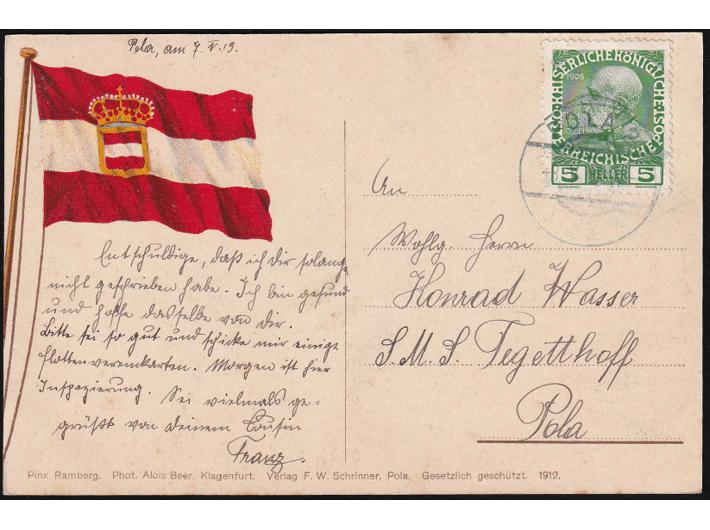 Pola, am 7. V. 19.
KAISERLICHE KÖNIGLICHE
ÖSTERREICHISCHE POST
1908
5 HELLER 5
POLA
Entschuldige, daß ich Dir solange
nicht geschrieben habe. Ich bin gesund
und hoffe dasselbe von Dir.
Bitte sei so gut und schicke mir einige
Flottenvereinkarten. Morgen ist hier
Inspezierung. Sei vielmals ge-
grüßt von deinem Cousin
Franz.
An
Wohlg. Herrn
Konrad Wasser
S. M. S. Tegetthoff
Pola
Pinx Ramberg. Phot. Alois Beer, Klagenfurt. Verlag F. W. Schrinner, Pola. Gesetzlich geschützt. 1912.